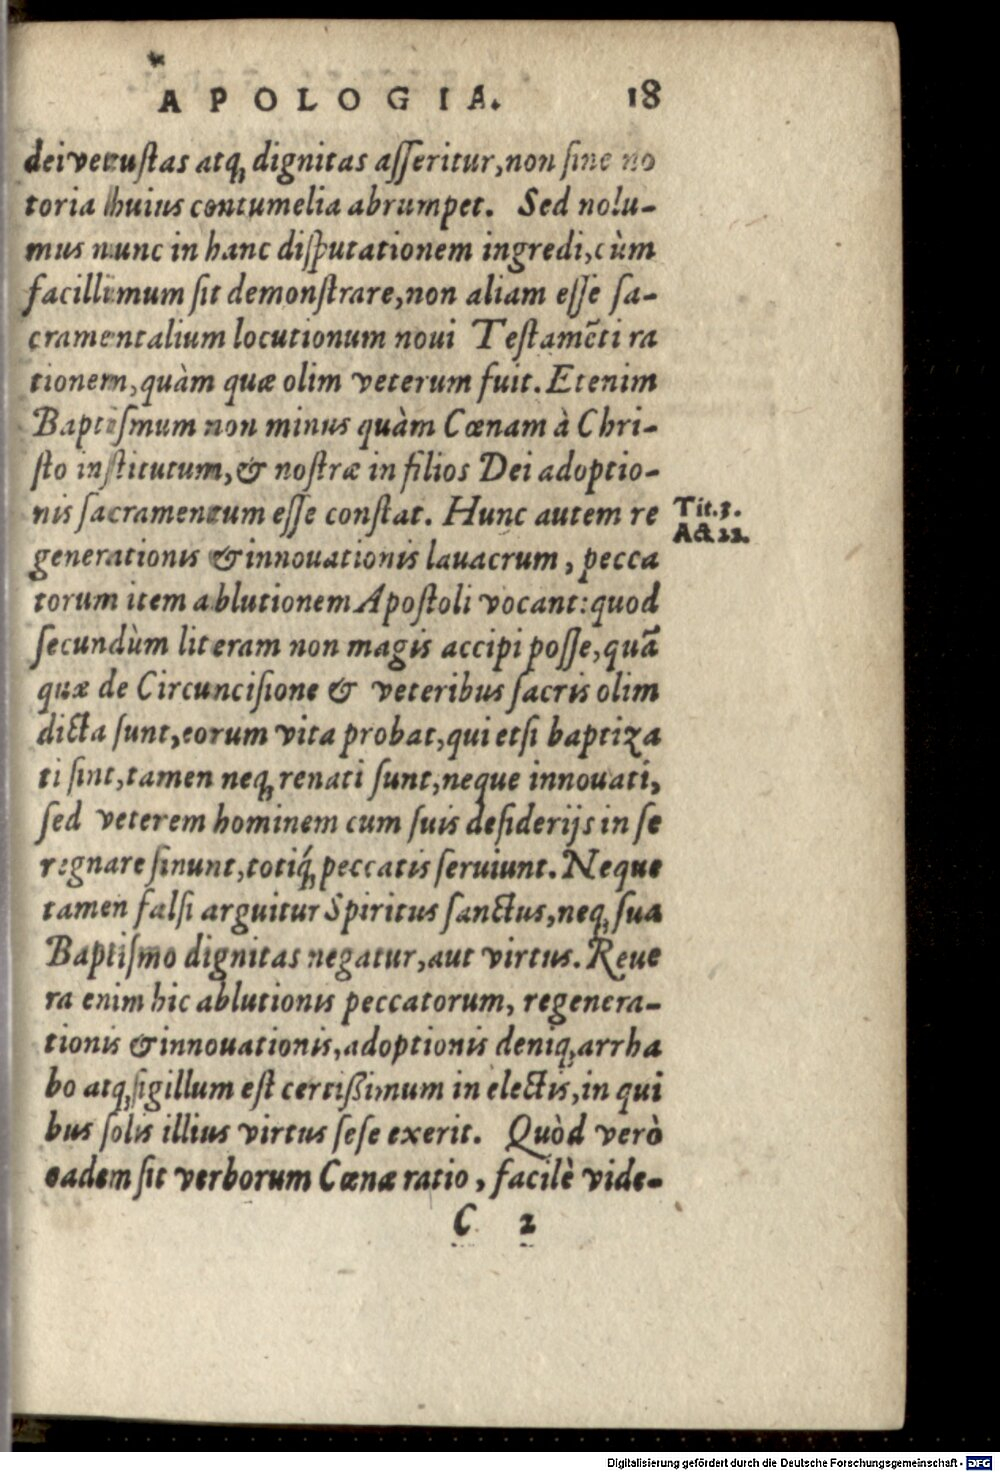 APOLOGIA. 18
dei vetustas atq; dignitas asseritur, non sine no
toria huius contumelia abrumpet. Sed nolu-
mus nunc in hanc disputationem ingredi, cùm
facillimum sit demonstrare, non aliam esse sa-
cramentalium locutionum noui Testamẽti ra
tionem, quàm quæ olim veterum fuit. Etenim
Baptismum non minus quàm Cœnam à Chri-
sto institutum, & nostræ in filios Dei adoptio-
nis sacramentum esse constat. Hunc autem re
Tit. 3.
Act. 22.
generationis & innouationis lauacrum, pecca
torum item ablutionem Apostoli vocant: quod
secundùm literam non magis accipi posse, quã
quæ de Circuncisione & veteribus sacris olim
dicta sunt, eorum vita probat, qui etsi baptiza
ti sint, tamen neq; renati sunt, neque innouati,
sed veterem hominem cum suis desiderijs in se
regnare sinunt, totiq́; peccatis seruiunt. Neque
tamen falsi arguitur Spiritus sanctus, neq; sua
Baptismo dignitas negatur, aut virtus. Reue
ra enim hic ablutionis peccatorum, regenera-
tionis & innouationis, adoptionis deniq; arrha
bo atq; sigillum est certißimum in electis, in qui
bus solis illius virtus sese exerit. Quòd verò
eadem sit verborum Cœnæ ratio, facilè vide-
C 2
Digitalisierung gefördert durch die Deutsche Forschungsgemeinschaft - DFG